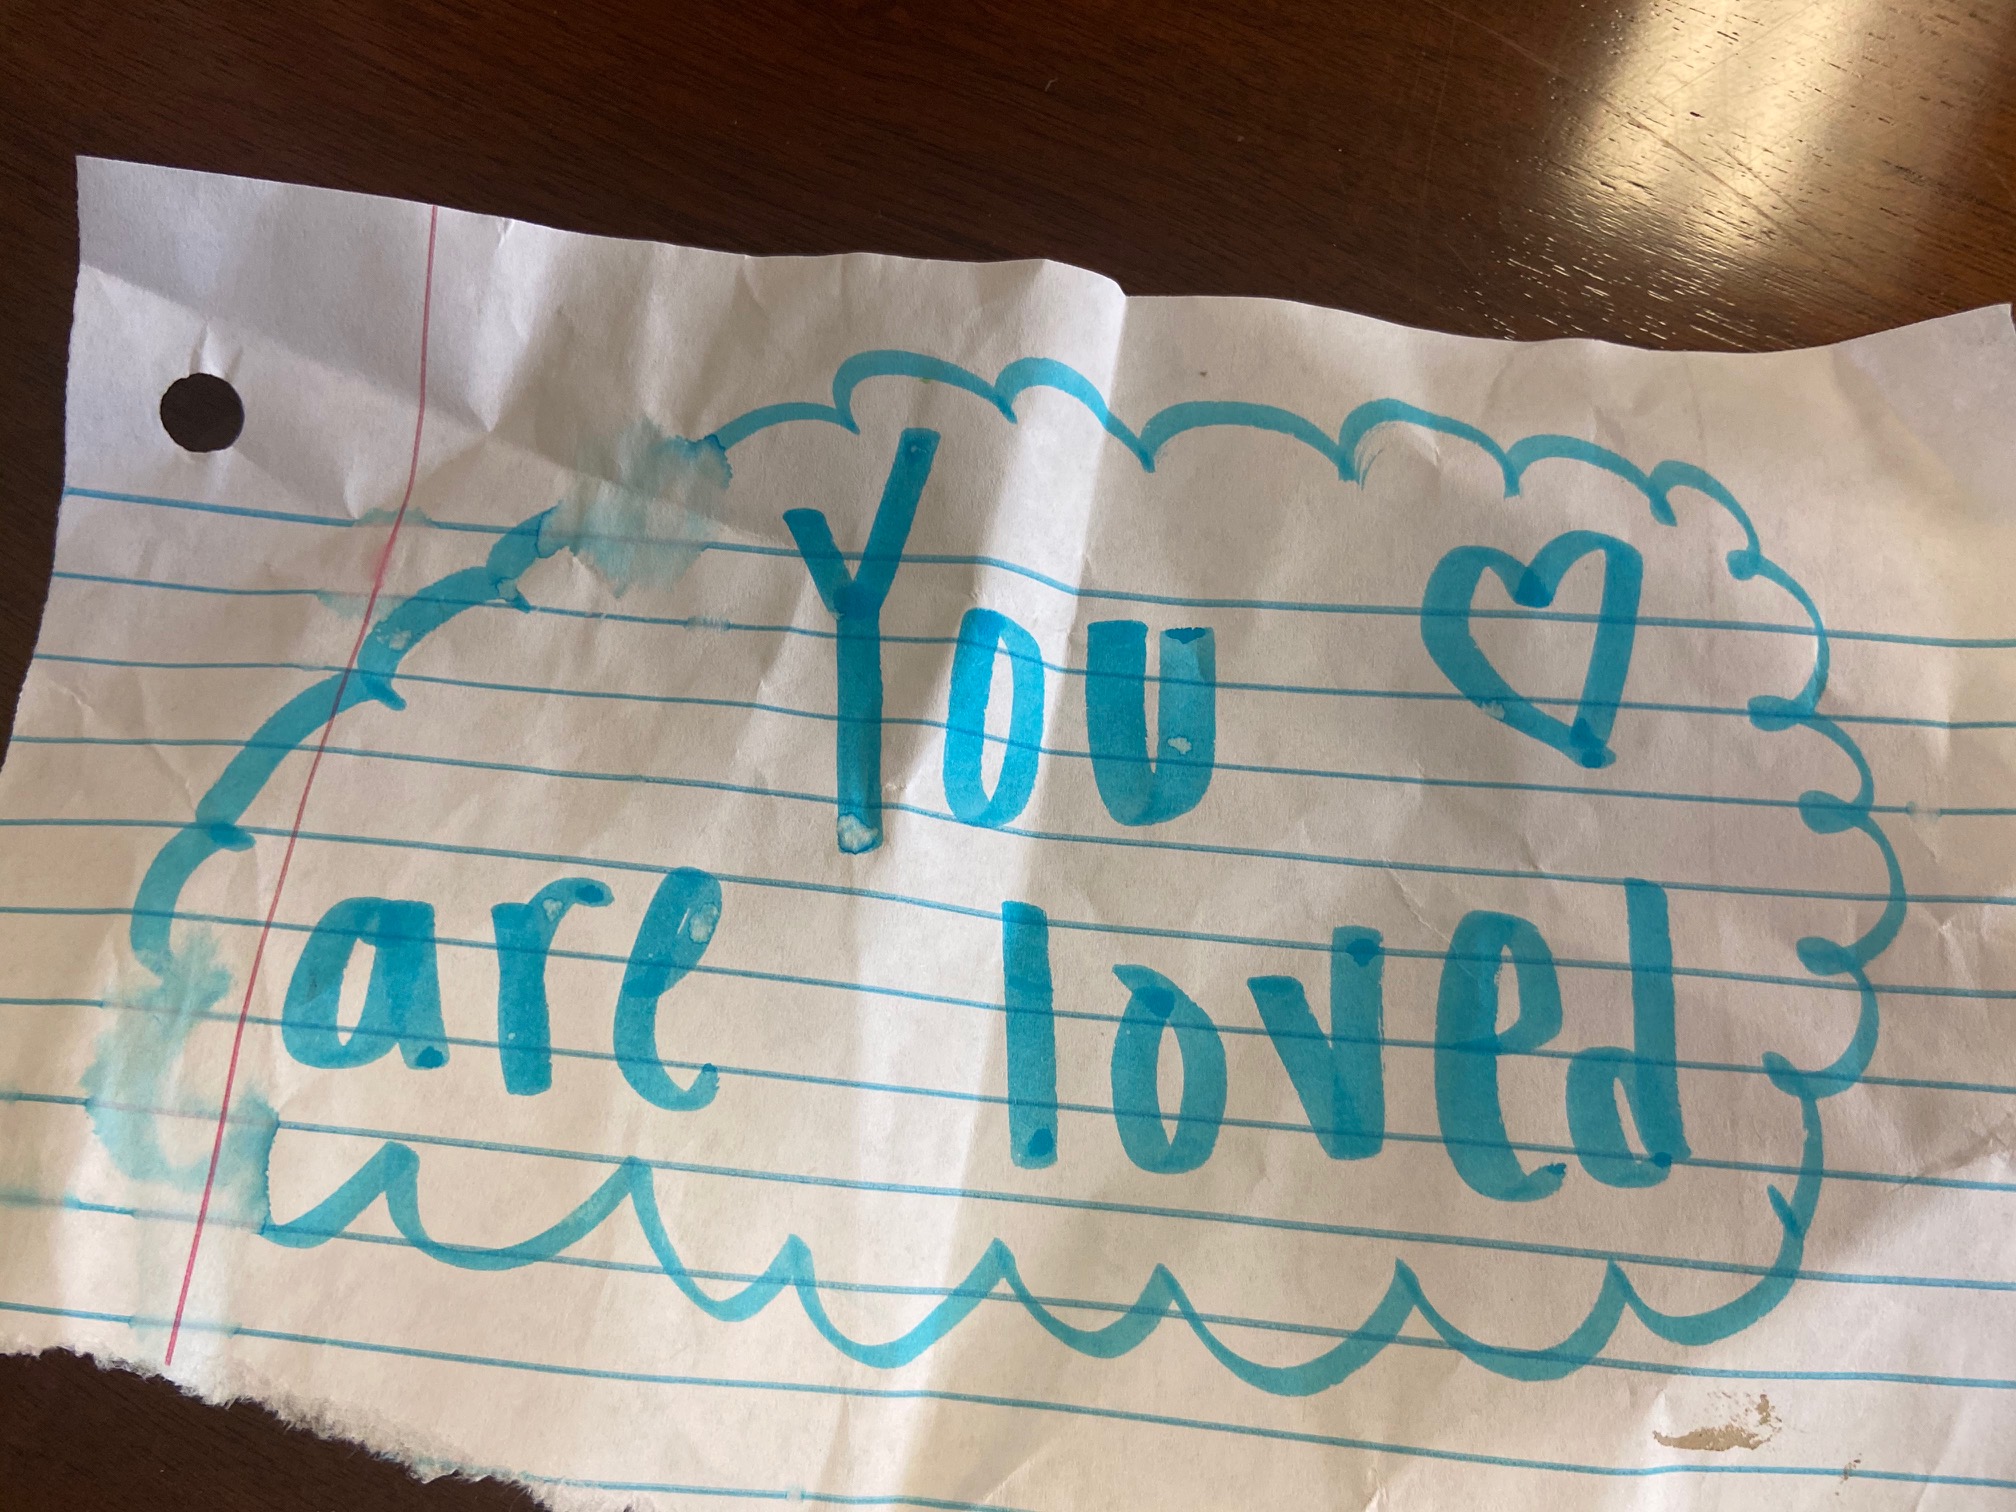 You
are loved